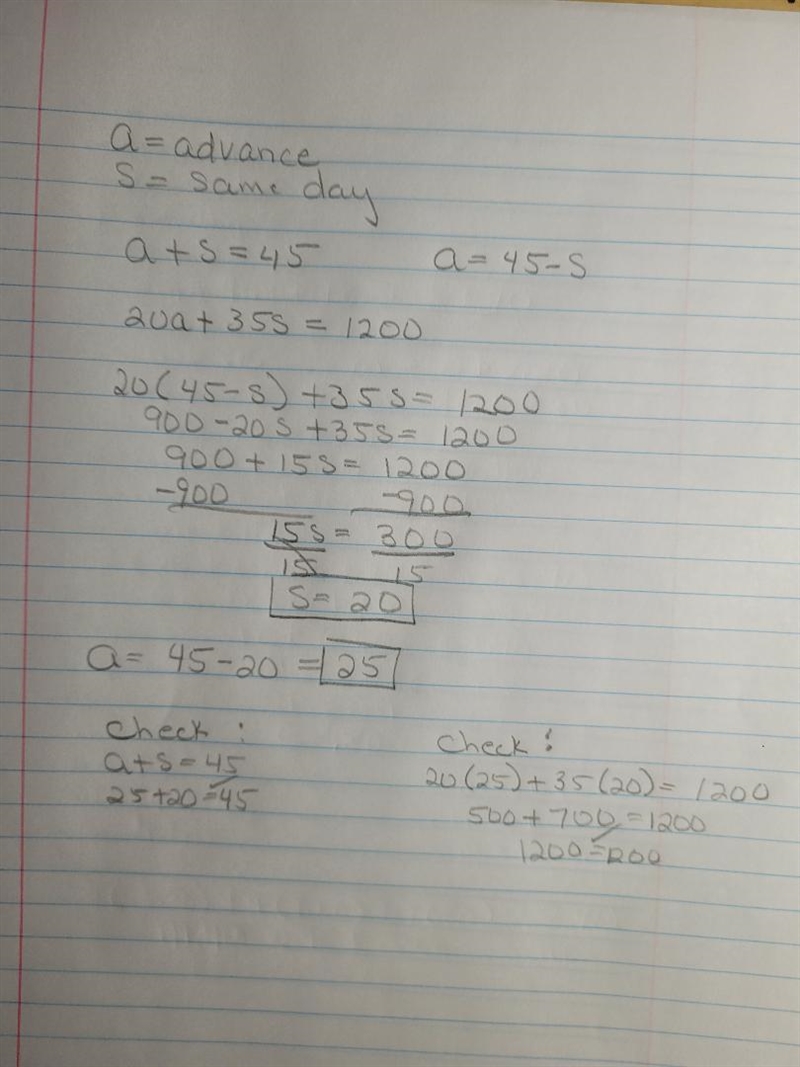 a = advance
s = same day
a + s = 45    a = 45 - s
20a + 35s = 1200
20(45 - s) + 35s = 1200
900 - 20s + 35s = 1200
900 + 15s = 1200
-900    -900
15s = 300
15    15
s = 20
a = 45 - 20 = 25
Check :
a + s = 45
25 + 20 = 45
Check :
20(25) + 35(20) = 1200
500 + 700 = 1200
1200 = 1200